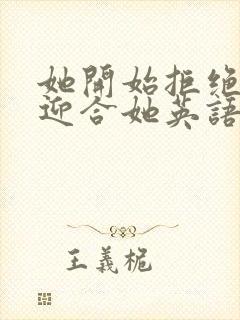 她開始拒绝
迎合她英語
王義栀